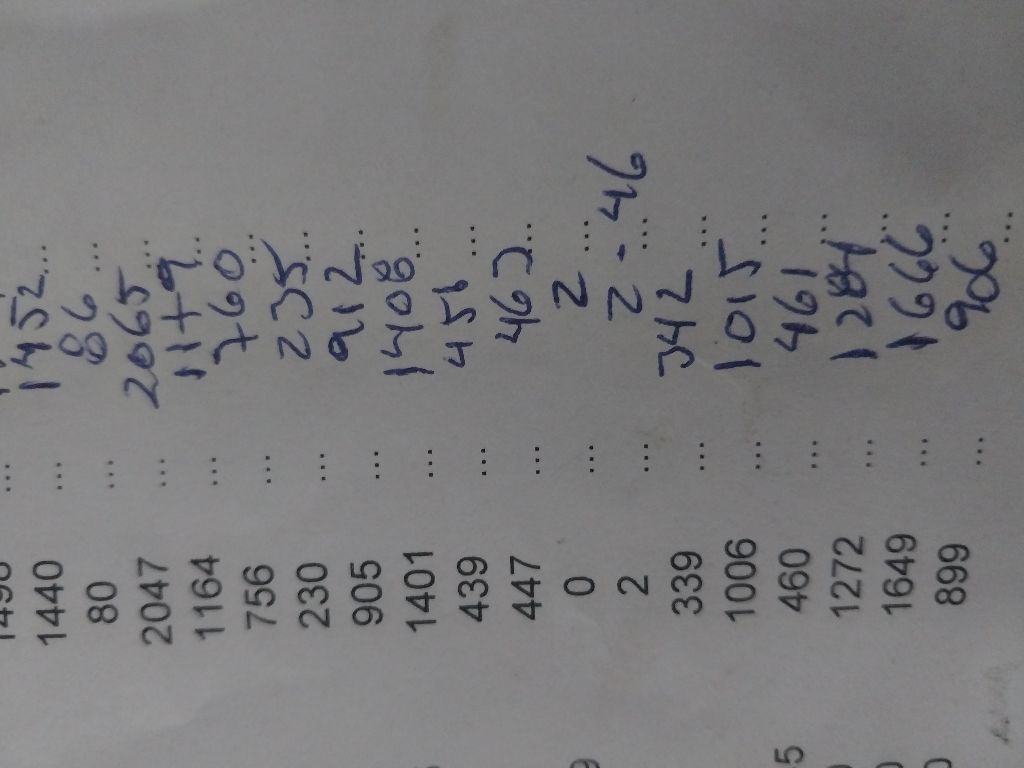 1440 ... 1452 ...
80 ... 86 ...
2047 ... 2065 ...
1164 ... 1179 ...
756 ... 760 ...
230 ... 235 ...
905 ... 912 ...
1401 ... 1408 ...
439 ... 456 ...
447 ... 462 ...
0 ... 2 ...
2 ... 2.46 ...
339 ... 342 ...
1006 ... 1015 ...
460 ... 461 ...
1272 ... ...
1649 ... 1666 ...
899 ... 906 ...